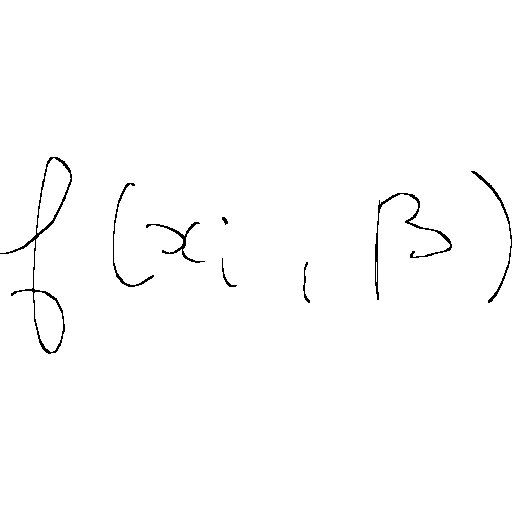 f(xᵢ, β)